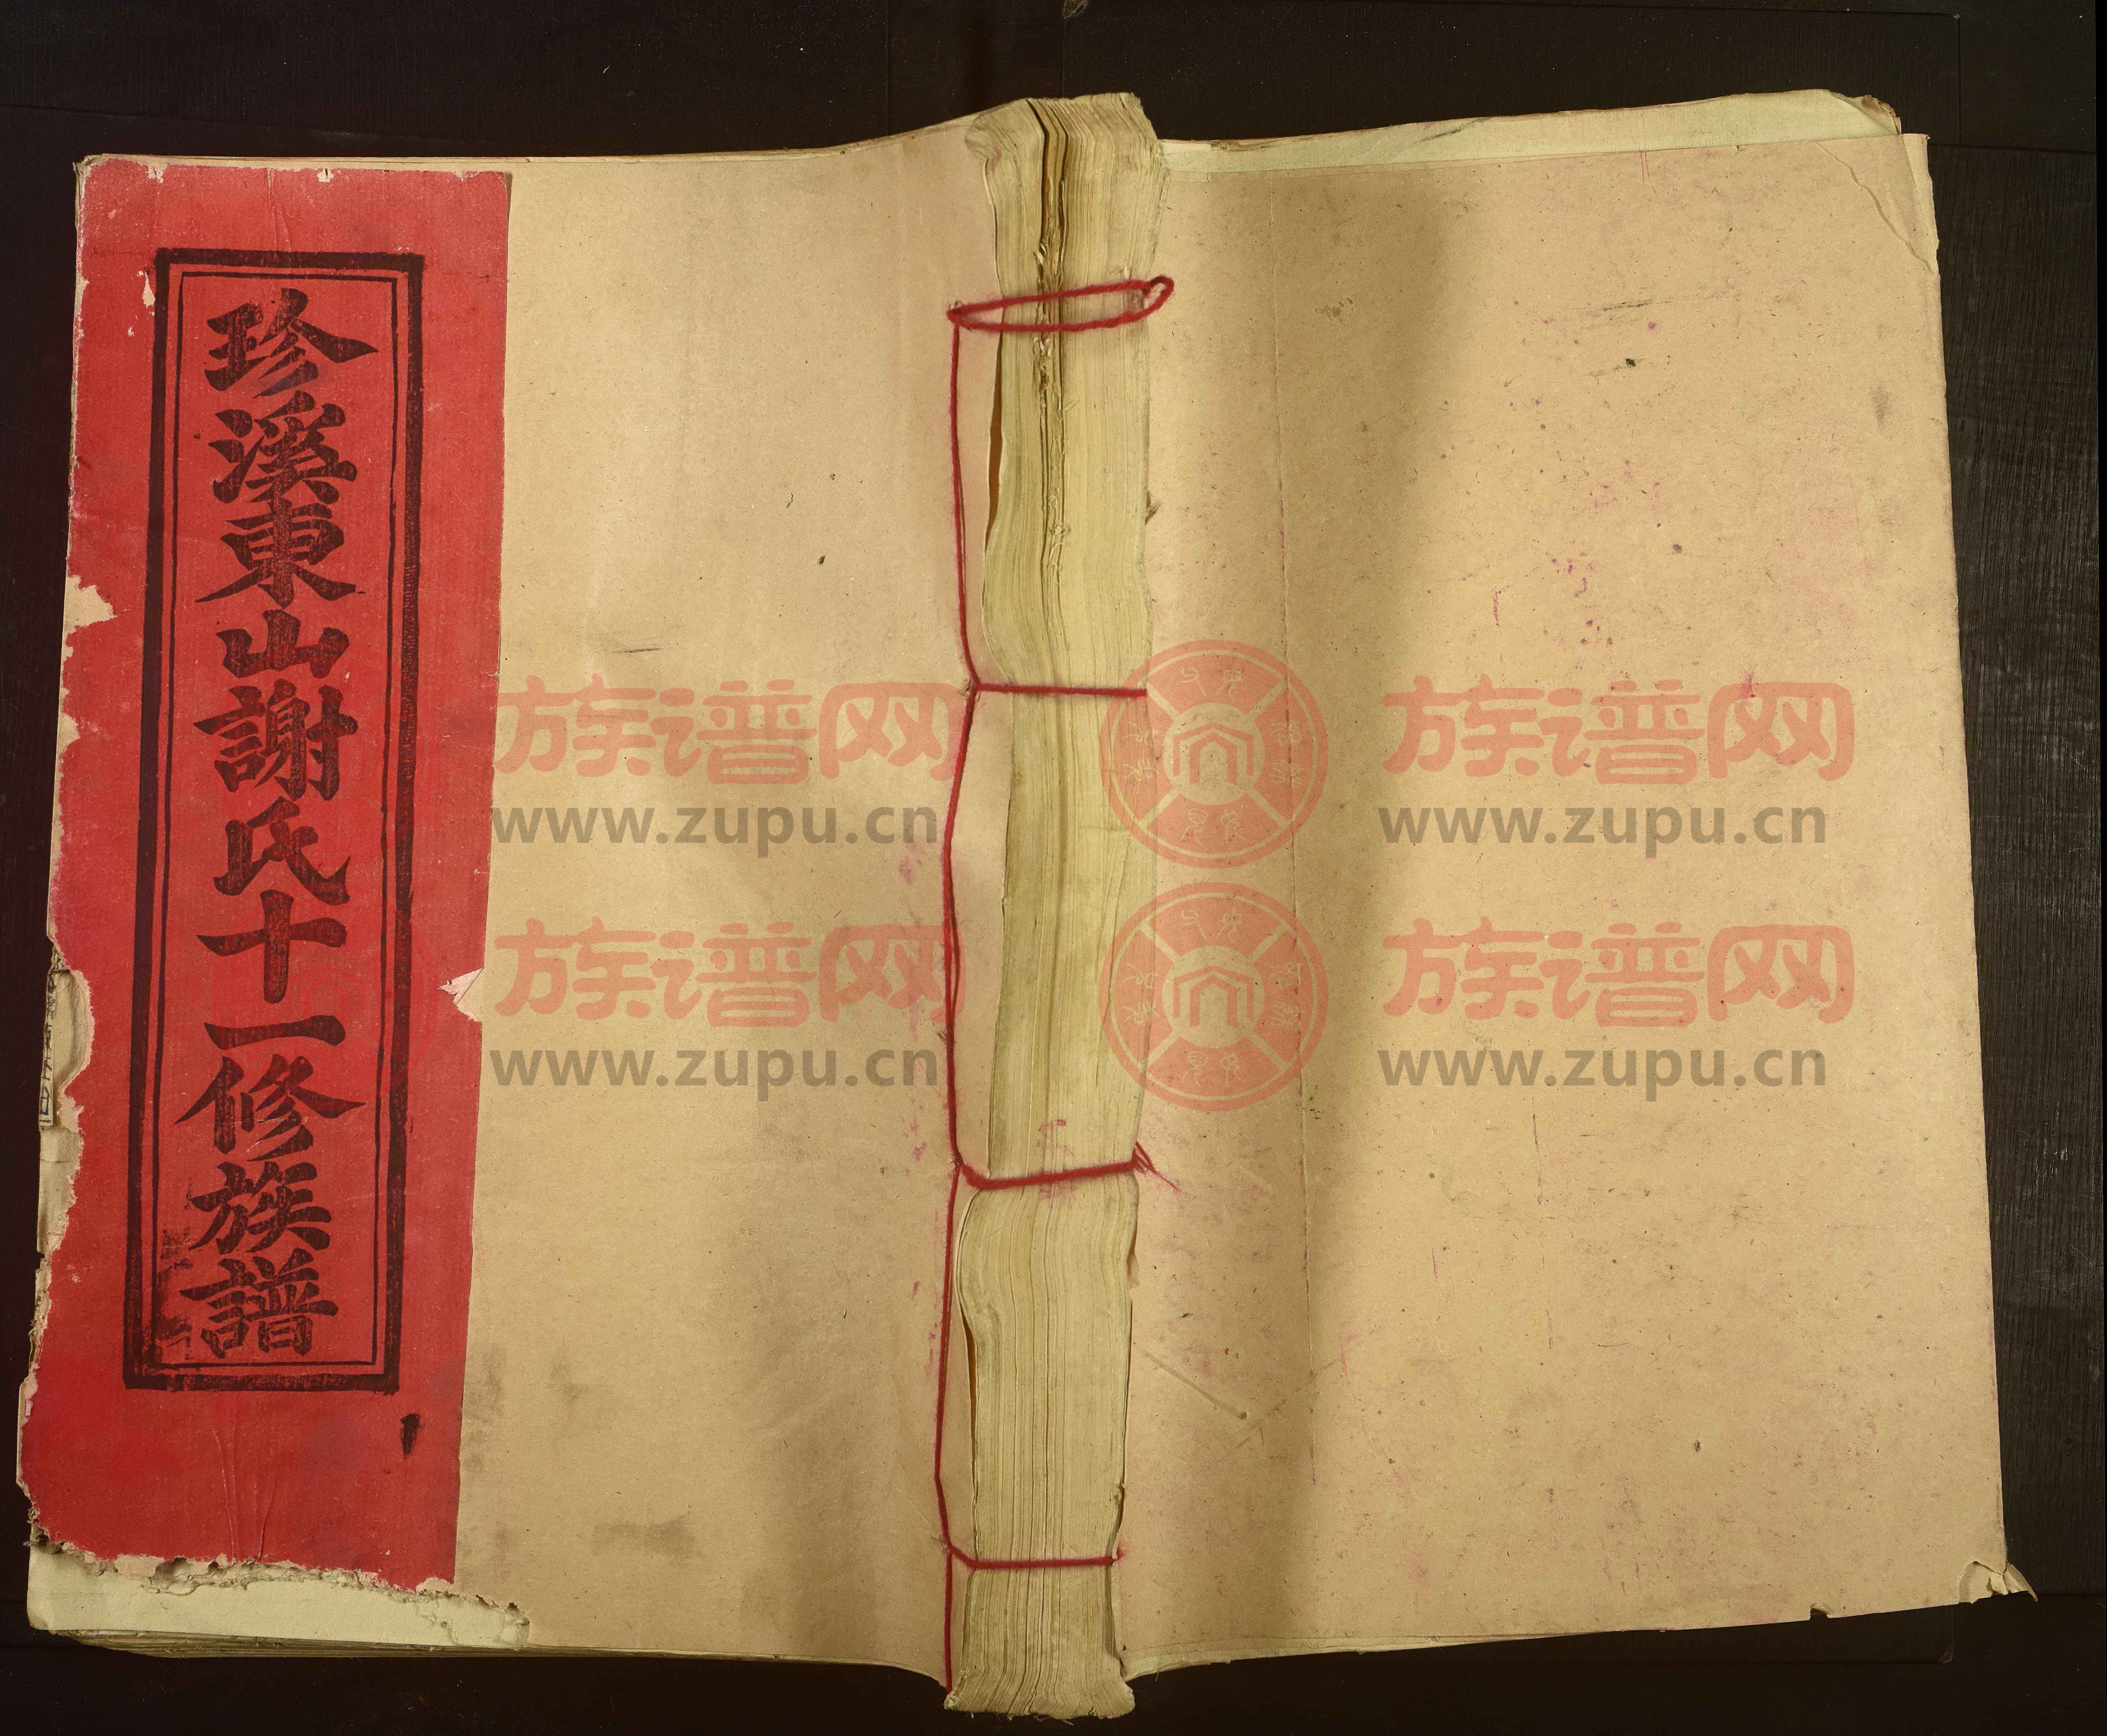 珍溪東山謝氏十一修族譜
族谱网
www.zupu.cn
族谱网
www.zupu.cn
族谱网
www.zupu.cn
族谱网
www.zupu.cn